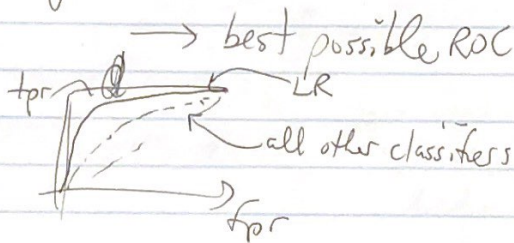 → best possible ROC
tpr
LR
all other classifiers
fpr